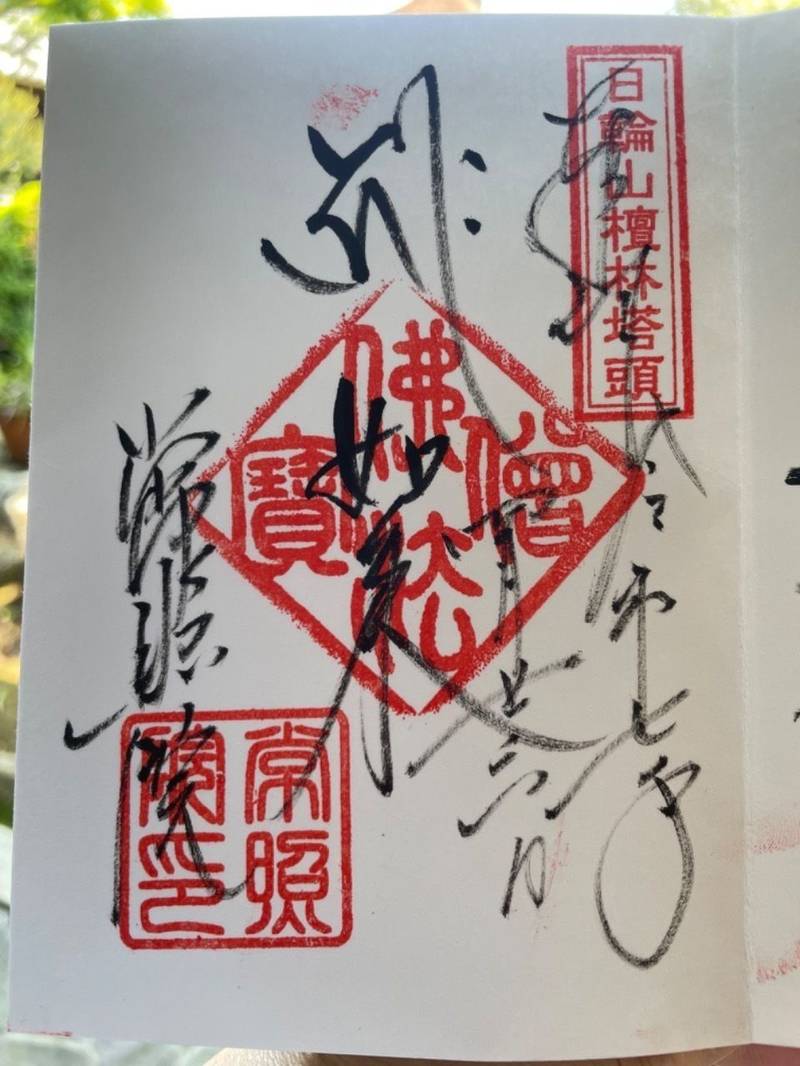 日輪山檀林塔頭
奉拝
令和七年
月廿六日
佛法僧寶
如来
常照院
常照院印